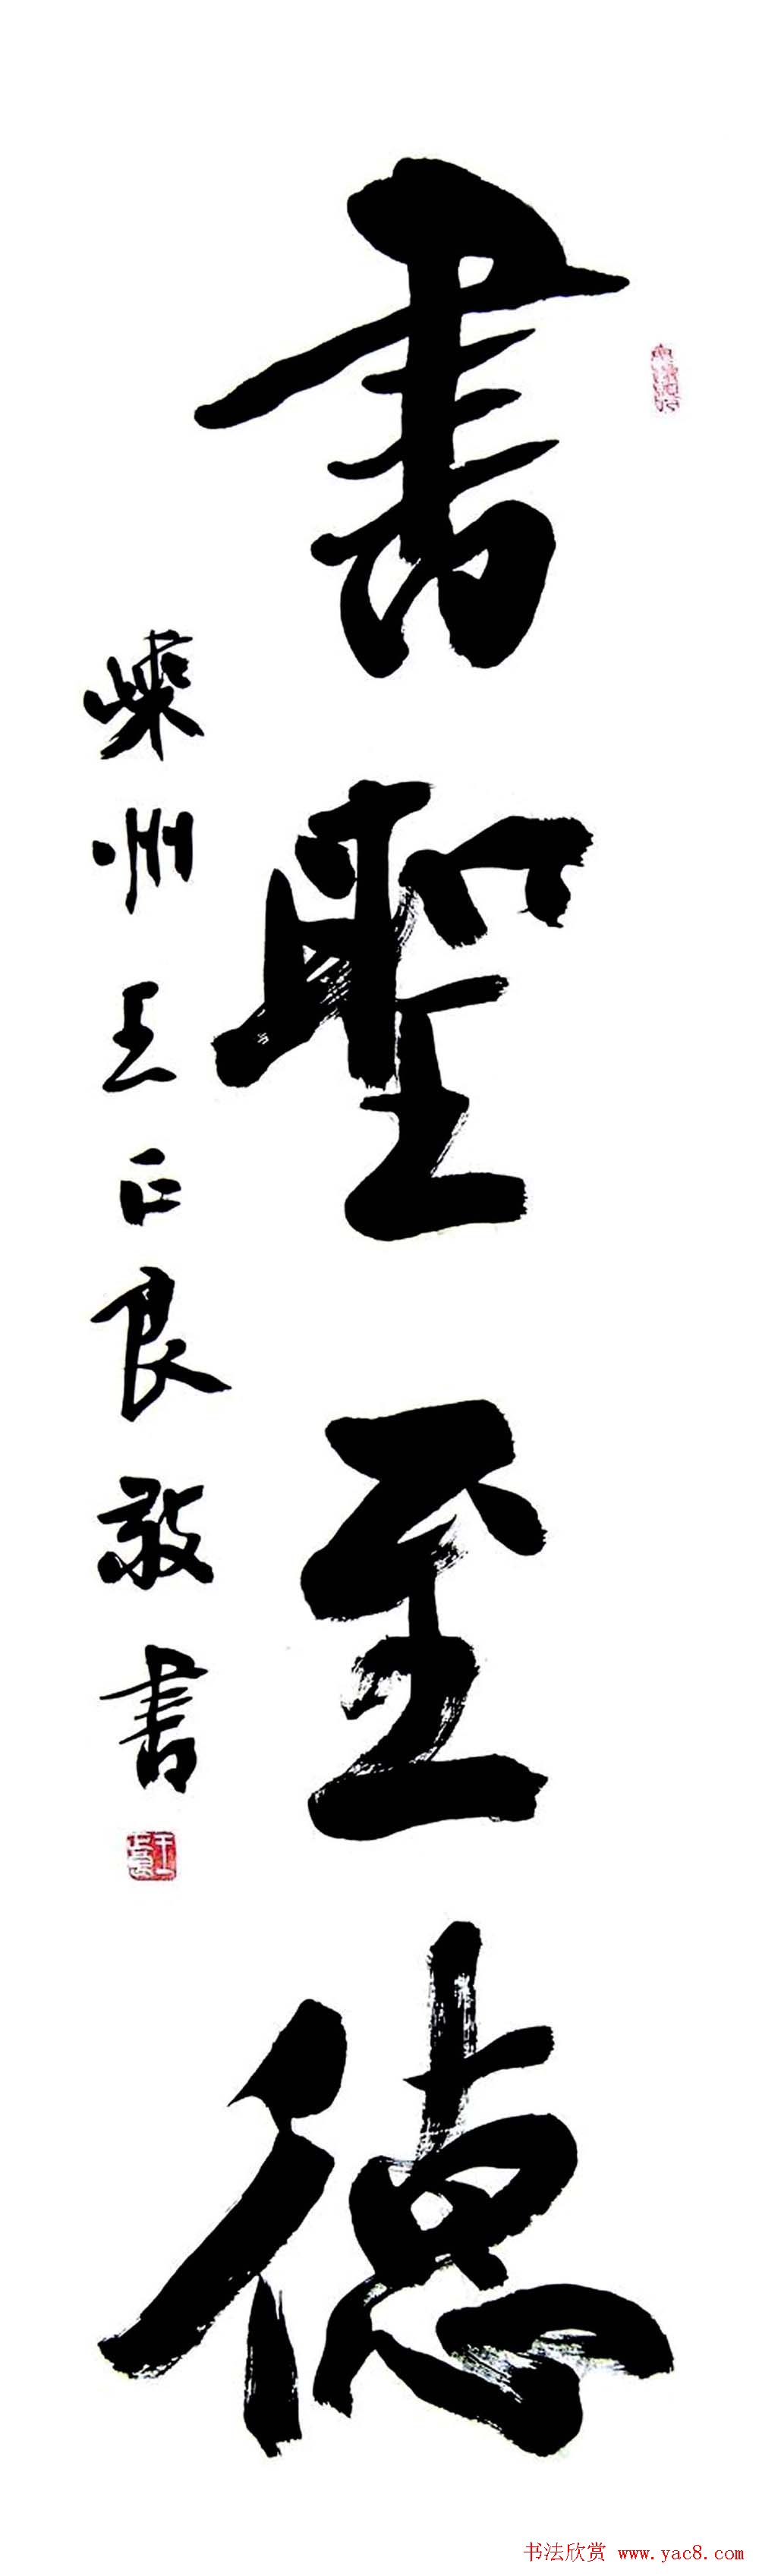 書聖至德
州王正良敬書
书法欣赏 www.yac8.com